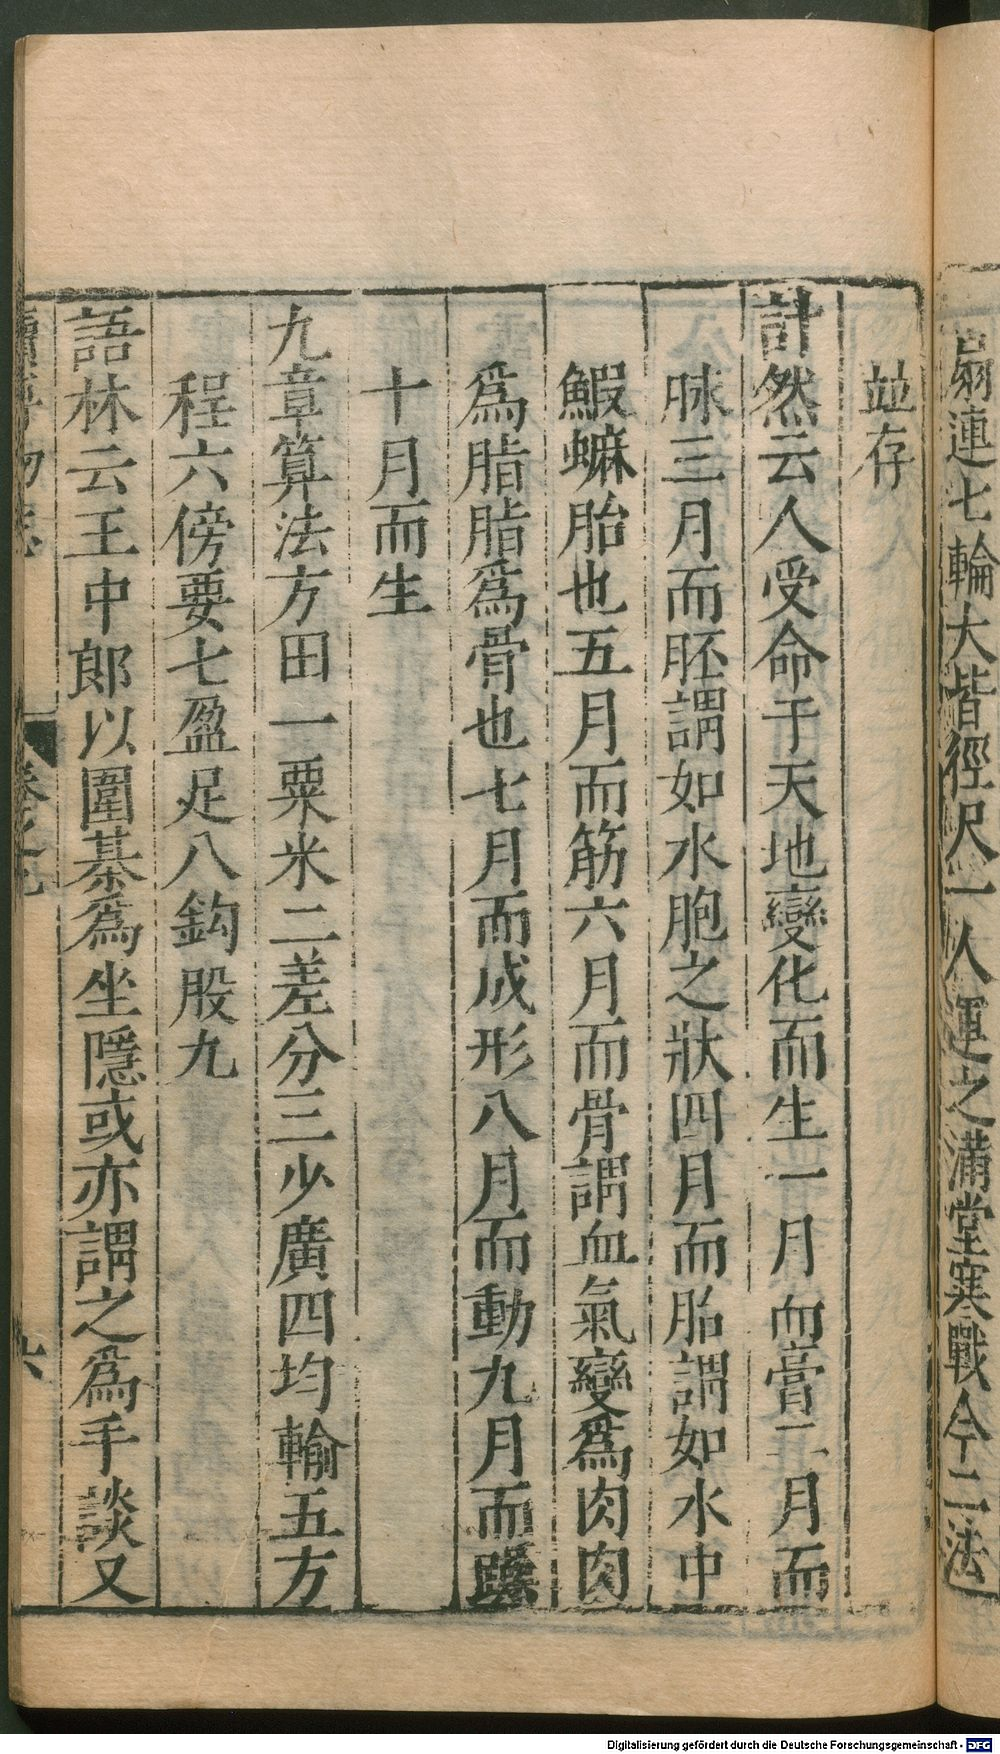 扇連七輪大皆徑尺一人運之滿堂寒戰今二法
並存
計然云人受命于天地變化而生一月血膏二月而
脉三月而胚謂如水胞之狀四月而胎謂如水中
鰕蟆胎也五月而筋六月而骨謂血氣變爲肉肉
爲脂脂爲骨也七月而成形八月而動九月而躁
十月而生
九章算法方田一粟米二差分三少廣四均輸五方
程六傍要七盈足八鈎股九
語林云王中郎以圍棊爲坐隱或亦謂之爲手談又
卷之九
六
Digitalisierung gefördert durch die Deutsche Forschungsgemeinschaft - DFG